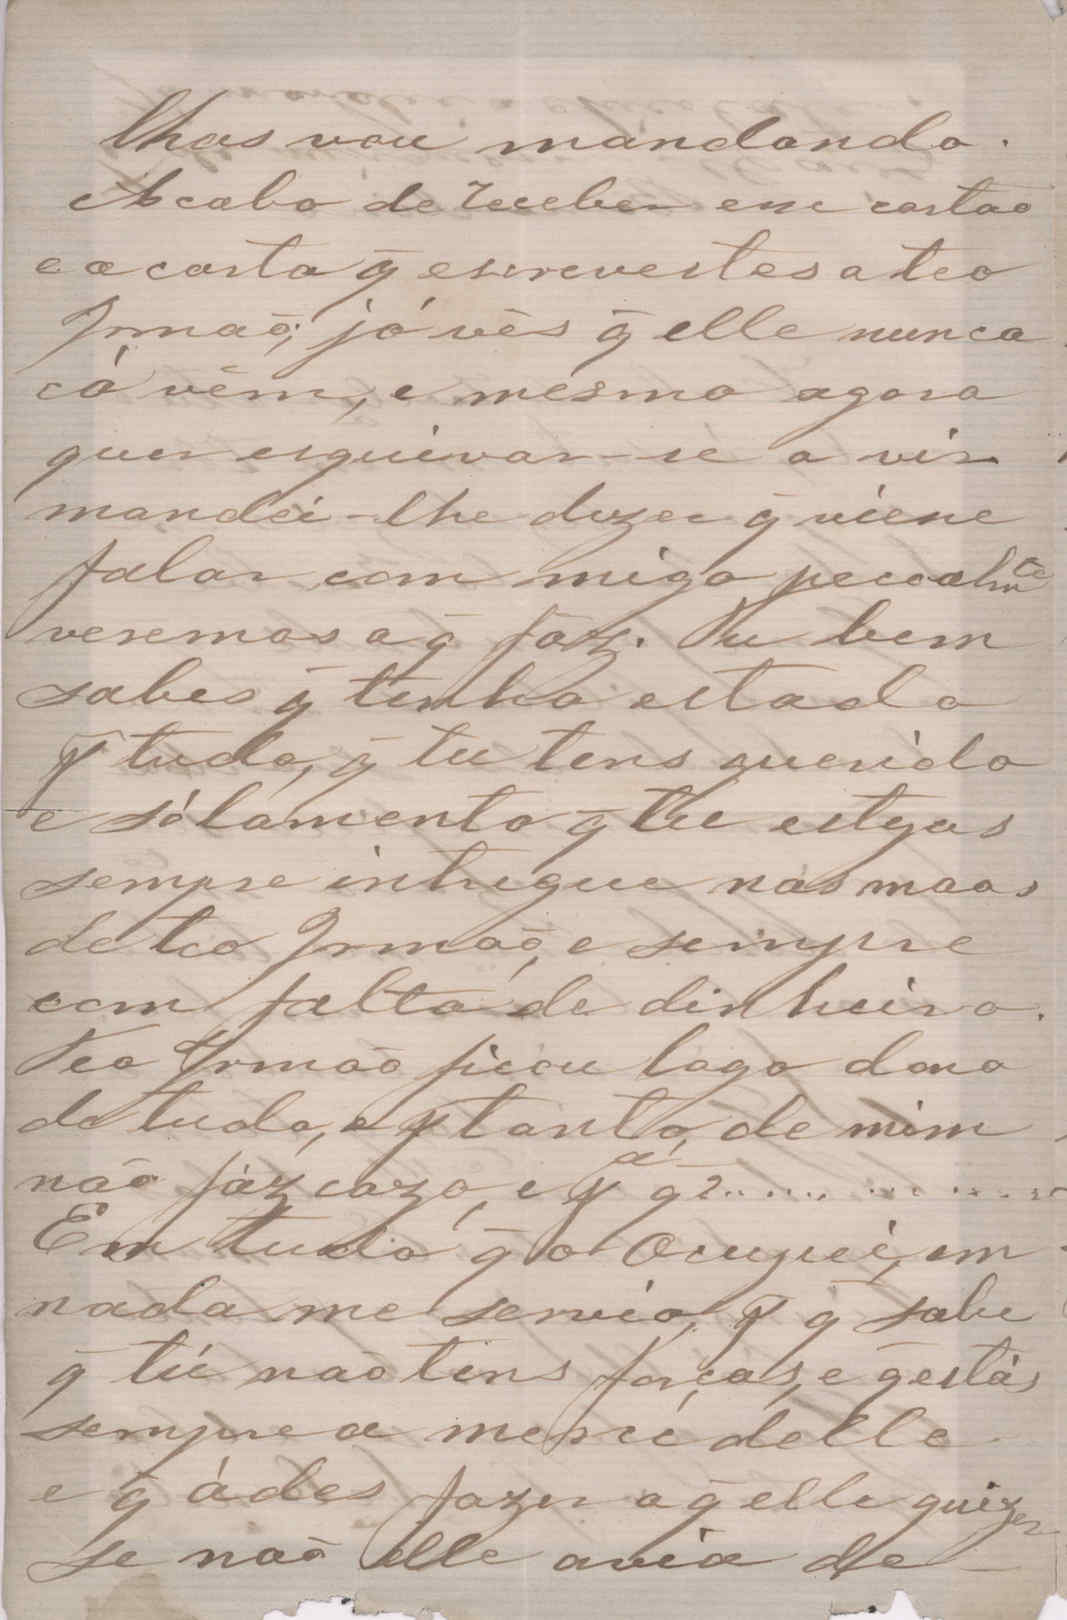 lhas vou mandando.
Acabo de receber esse cartaõ
e a carta q̃ escrevestes a teo
Irmaõ, já vês q̃ elle nunca
cá vêm, e mesmo agora
quer esquivar-se a vir
mandei-lhe dizer q̃ viesse
falar com migo pessoalmte
veremos a q̃ fáz. Tu bem
sabes q̃ tenho estado
p̃ tudo, q̃ tu tens querido
e sólamento q̃ tu estejas
sempre intregue nas maos
de teo Irmaõ, e sempre
com falta de dinheiro.
Teo Irmaõ ficou logo dono
de tudo, e p̃tanto, de mim
naõ fáz cazo, e pa q? . . . . . . . . . . . .
Em tudo q̃ o Ocupei, em
nada me servio, p̃ q̃ sabe
q̃ tú naõ tens forças, e q̃ estás
sempre a mercé delle
e q̃ ádes fazer a q̃ elle quizer
se naõ elle avia de